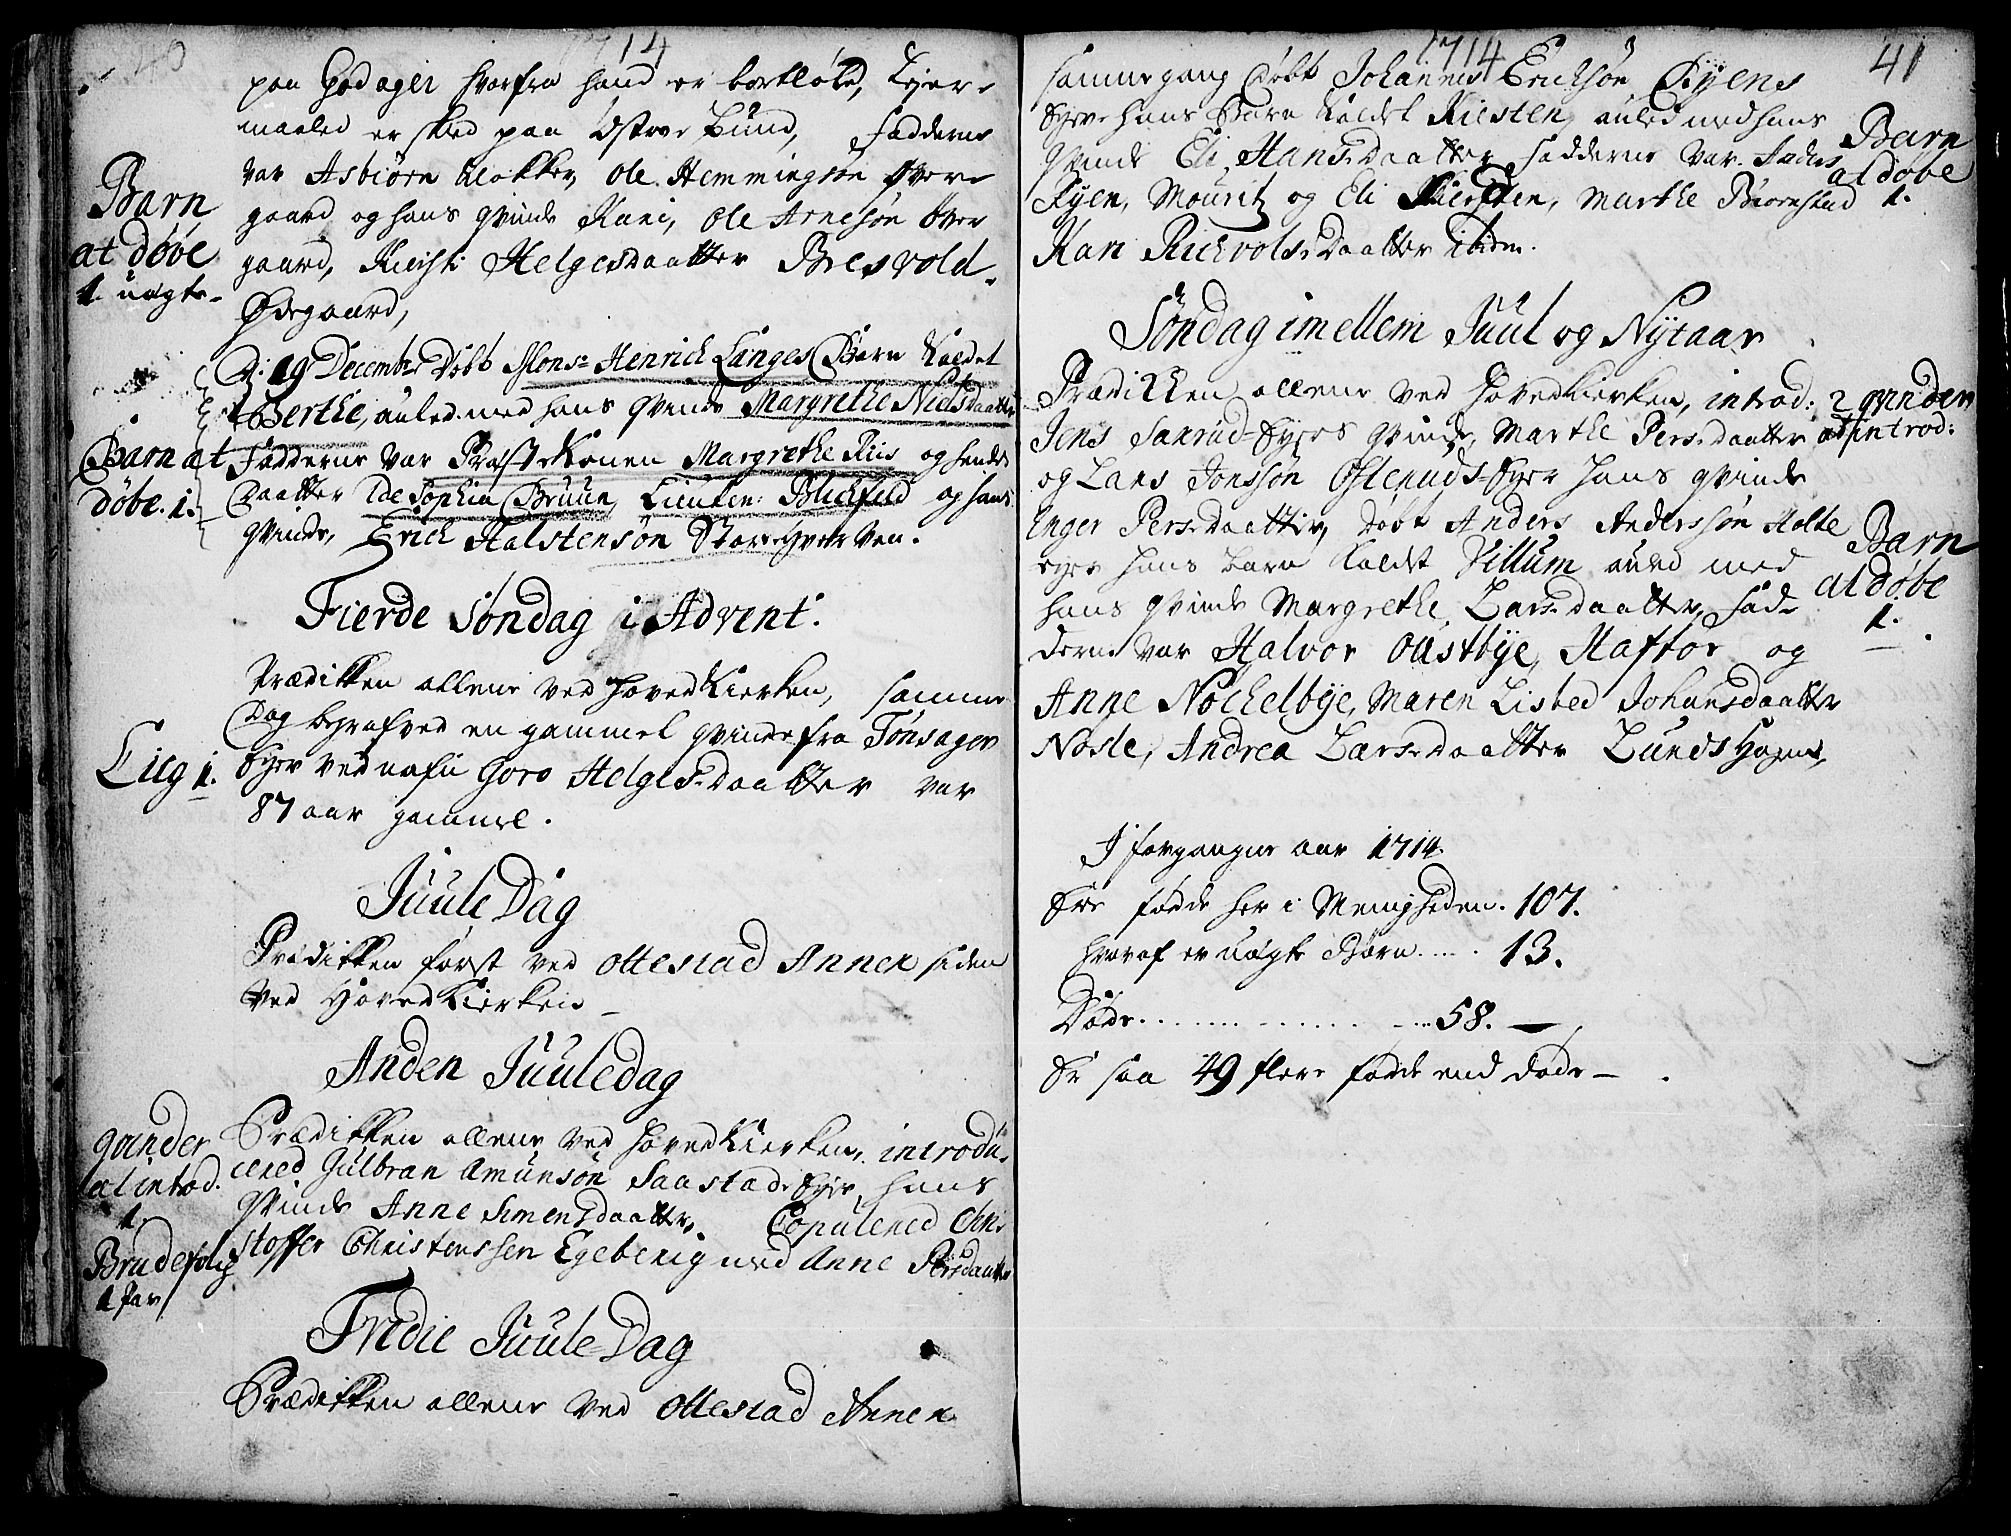 40
1714
paa Godager hvorfra hand er bortløbt, Leyer-
maalet er skeed paa Østre Lund, Fadderne
var Asbiørn Klokker, Ole Hemmingsøn Øver-
gaard og hans qvinde Kari, Ole Arnesøn Over
gaard, Kirsti Helgesdaatter Bresvold-
Ødegaard,
Barn
at døbe
1. uægte-
D: 19 Decembr Døbt Mons= Henrich Langes Barn kaldet
Berthe, auled med hans qvinde Margrethe Nielsdaatter
Fadderne var Præste Konen Margrethe Riis og hendes
Daatter Ide Sophia Bruun, Lieuten: Blichfeld og hans
qvinde, Erich Halstensøn Store Hverven.
Barn at
døbe. 1.
Fierde Søndag i Advent.
Prædikken allene ved HovedKierken, samme
Dag begrafved en gammel qvinde fra Tønsager
Eyer ved nafn Goro Helges-daatter var
87 aar gammel.
Liig 1.
Juule Dag
Prædikken først ved Ottestad Annex siden
ved HovedKierken
Anden Juuledag
Prædikken allene ved HovedKierken, introdu-
cered Gulbran Amunsøn Saastad-Eyer hans
qvinde Anne Simensdaatter, Copulered Chri
stoffer Christenssen Egeberig med Anne Persdaatter
qvinder
at introd.
1.
Brudefolch
1 Par
Tredie Juule-Dag
Prædikken allene ved Ottestad Annex
1714
41
samme gang Døbt Johannes Erichsøn Ryens
Eyer hans Barn kaldet Kiersten, auled med hans
qvinde Eli Hans-daatter Fadderne var. Anders
Ryen, Mouritz og Eli Kiersten, Marthe Biørnstad
Kari Richvols-daatter ibidm.
Barn
at døbe
1.
Søndag imellem Juul og Nytaar
Prædikken allene ved HovedKierken, introd:
Jens Sanrud-Eyers qvinde, Marthe Pers-daatter
og Lars Jonssøn Ostenuds-Eyer hans qvinde
Enger Pers-daatter, døbt Anders Anderssøn Holte
eyer hans barn kaldet Villum auled med
hans qvinde Margrethe Lars-daatter, Fad-
derne var Halvor Oustbye, Haftor og
Anne Nockelbye, Maren Lisbed Johansdaatter
Nosle, Andrea Lars-daatter Lunds Hagen,
2 qvinder
at introd:
Barn
at døbe
1.
I forgangne aar 1714.
Ere fødde her i Menigheden. 107.
hvoraf er uægte Børn..... 13.
Døde.............58.
Er saa 49 flere fødde end døde